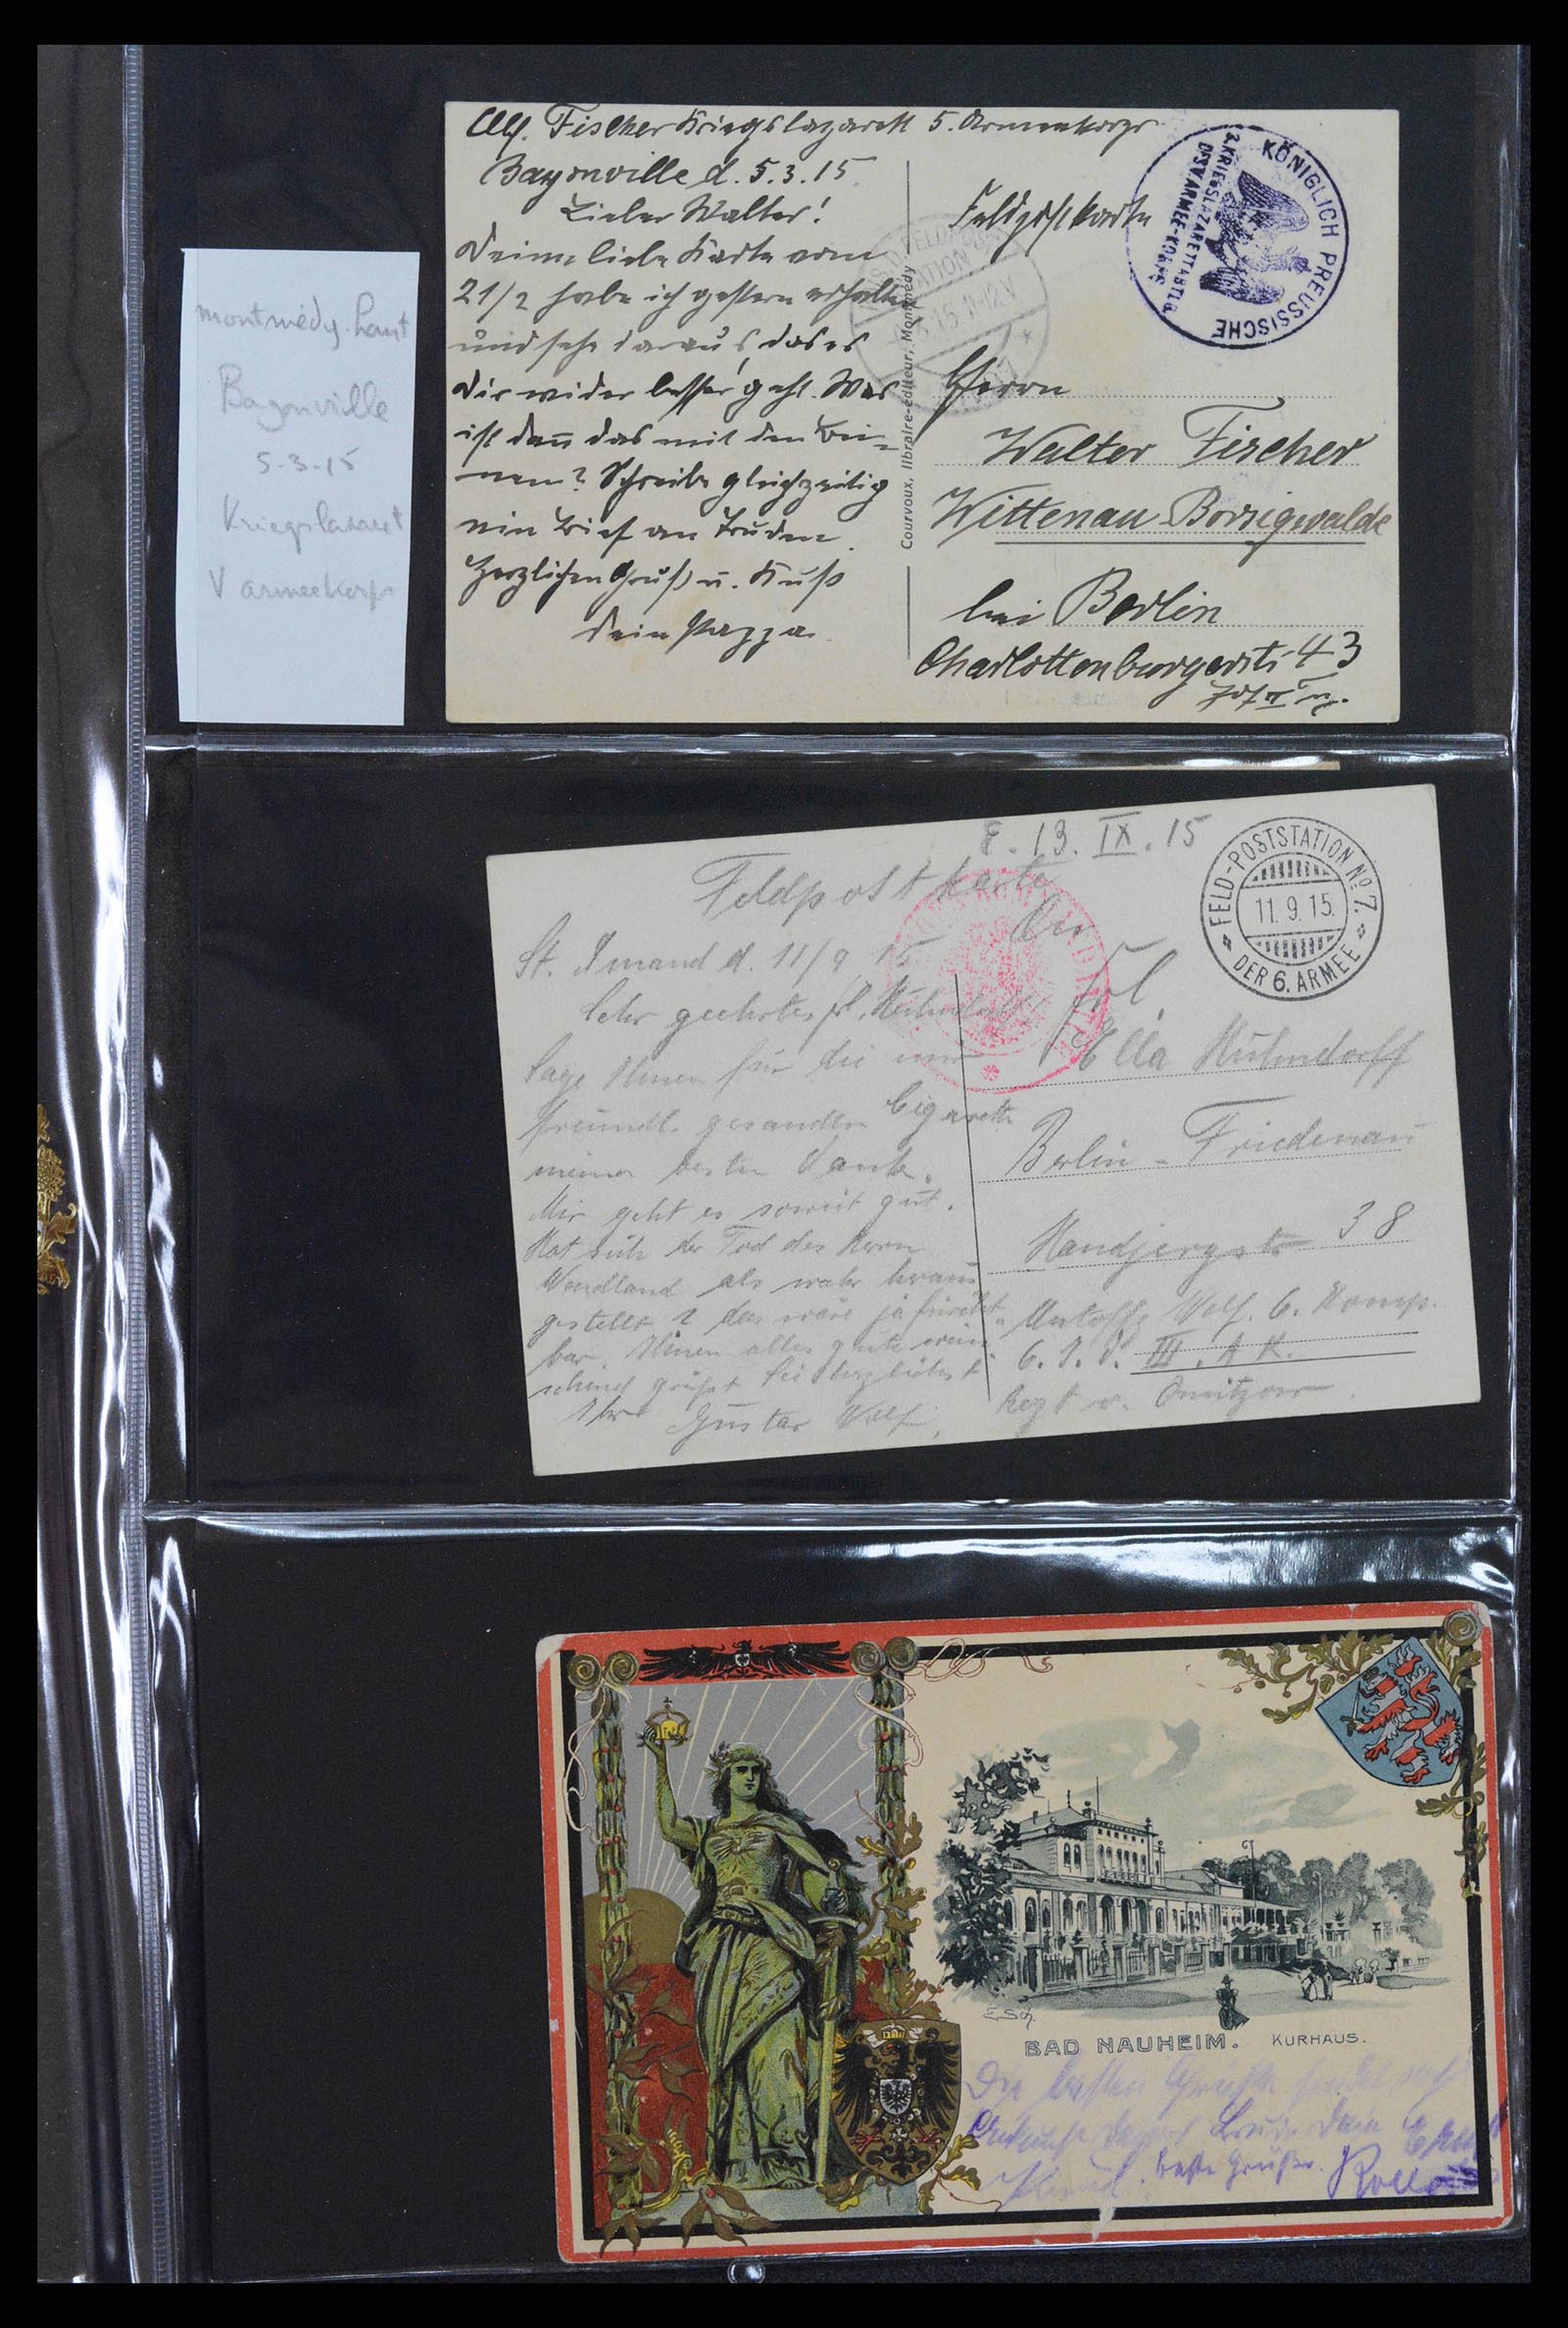 montmédy-haut
Bayonville
5-3-15
Kriegslazaret
V armeekorps
Fischer Kriegslazarett 5. Armeekorps
Bayonville d. 5.3.15.
Lieber Walter!
Deine liebe Karte vom
21/2 habe ich gestern erhalten
und sehe daraus, das es
dir wider besser geht. Was
ist dann das mit den Bei-
nen? Schreibe gleichzeitig
ein Brief an Truden.
Herzlichen Gruß u. Kuß
dein Pappa.
Courvoux, libraire-éditeur, Montmédy
Feldpostkarte
KÖNIGLICH PREUSSISCHE
2. KRIEGSLAZARETTABTLG.
DES V. ARMEE-KORPS
Herrn
Walter Fischer
Wittenau-Borsigwalde
bei Berlin
Charlottenburgerstr 43
13. IX. 15
Feldpostkarte
FELD-POSTSTATION No 7.
11.9.15.
DER 6. ARMEE
St. Amand d. 11/9 15
Sehr geehrtes frl.
Sage Ihnen für die mir
freundl. gesandten Cigarette
meinen besten Dank.
Mir geht es soweit gut.
Hat sich der Tod des Herrn
Wendland als wahr heraus
gestellt? das wäre ja furcht-
bar. Ihnen alles gute wün-
schend grüßt Sie herzlichst
Ihr Gustav Wolf.
An
Frl.
Ella Kühndorff
Berlin - Friedenau
Handjerystr 38
Untoffz Wolf. 6. Komp.
III. A K.
Regt v.
E.Sch.
BAD NAUHEIM. KURHAUS.
Die besten Grüße sendet
beste Grüße.